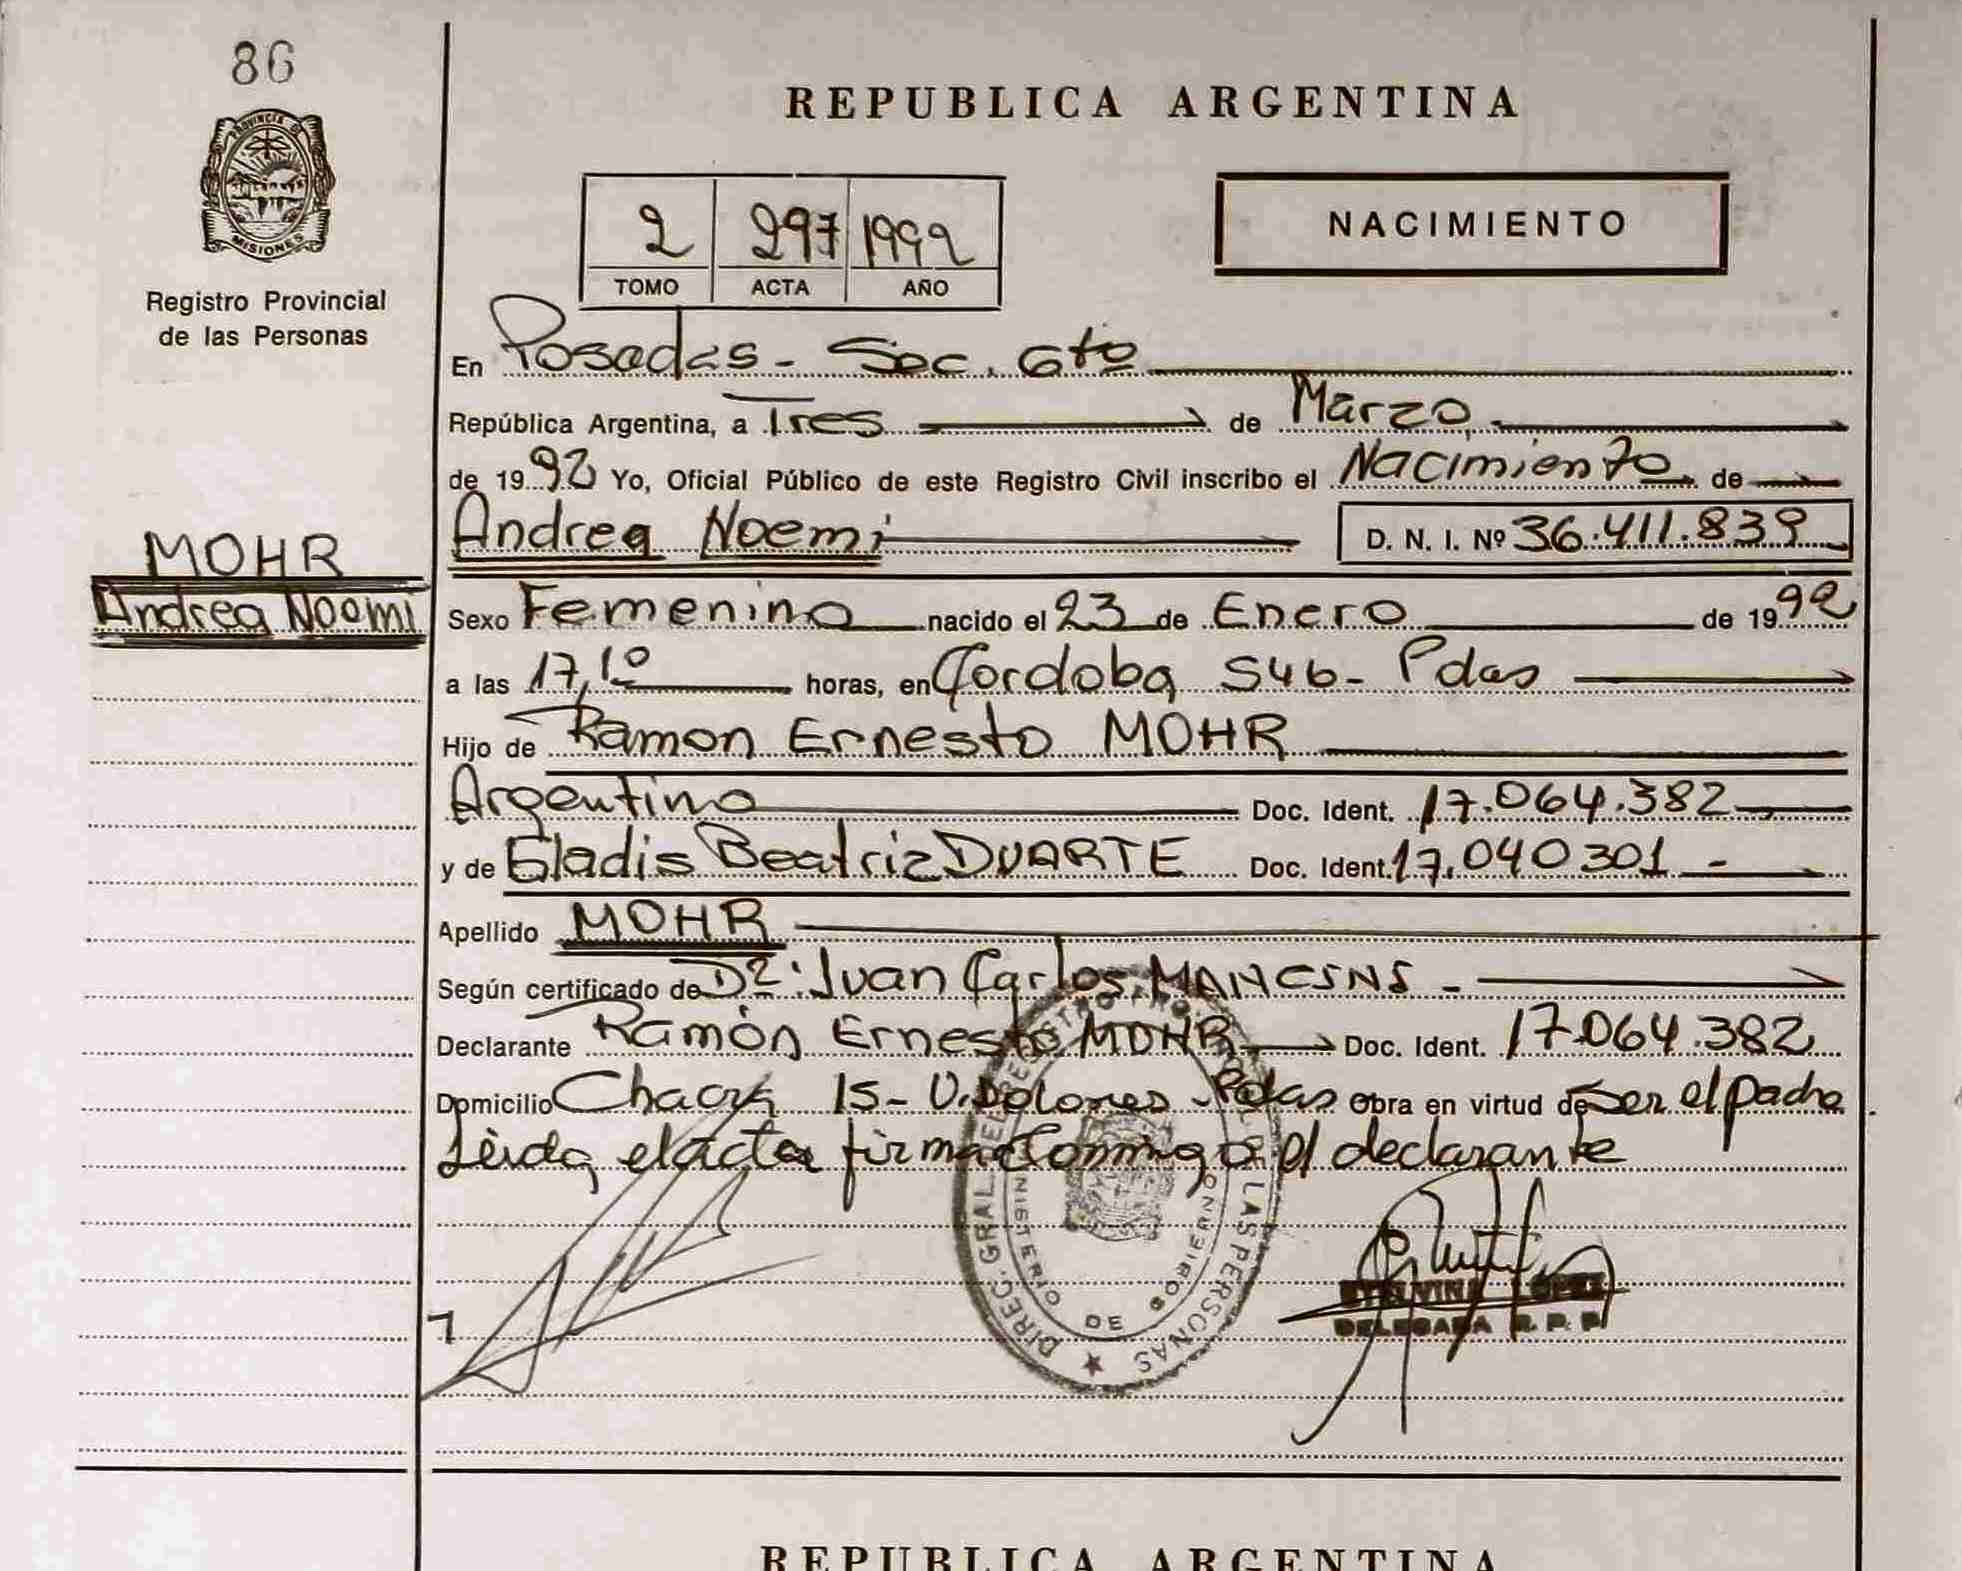 86
REPUBLICA ARGENTINA
PROVINCIA DE
MISIONES
Registro Provincial
de las Personas
2 297 1992
TOMO ACTA AÑO
NACIMIENTO
En Posadas - Sec. 6to
República Argentina, a Tres de Marzo
de 1992 Yo, Oficial Público de este Registro Civil inscribo el Nacimiento de
Andrea Noemi D. N. I. Nº 36.411.839
MOHR
Andrea Noemi
Sexo Femenino nacido el 23 de Enero de 1992
a las 17,10 horas, en Cordoba 546 - Pdas
Hijo de Ramon Ernesto MOHR
Argentino Doc. Ident. 17.064.382
y de Gladis Beatriz DUARTE Doc. Ident. 17.040301 -
Apellido MOHR
Según certificado de Dr: Juan Carlos
Declarante Ramón Ernesto MOHR Doc. Ident. 17.064.382
Domicilio Chacra 15 - V. Dolores - Pdas obra en virtud de ser el padre
Leida el acta firma conmigo el declarante
DIREC. GRAL. DEL REGISTRO LAS PERSONAS
MINISTERIO DE
LOPEZ
DELEGADA R. P. P.
REPUBLICA ARGENTINA